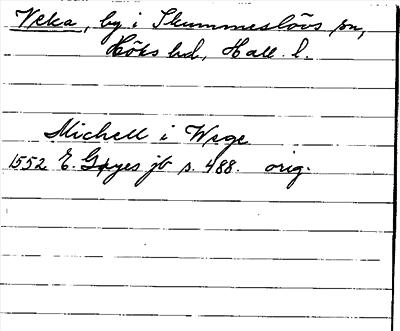 Veka, by i Skummeslövs sn,
Höks hd, Hall. l.
Michell i Wege
1552 E. Gøyes jb s. 488. orig.